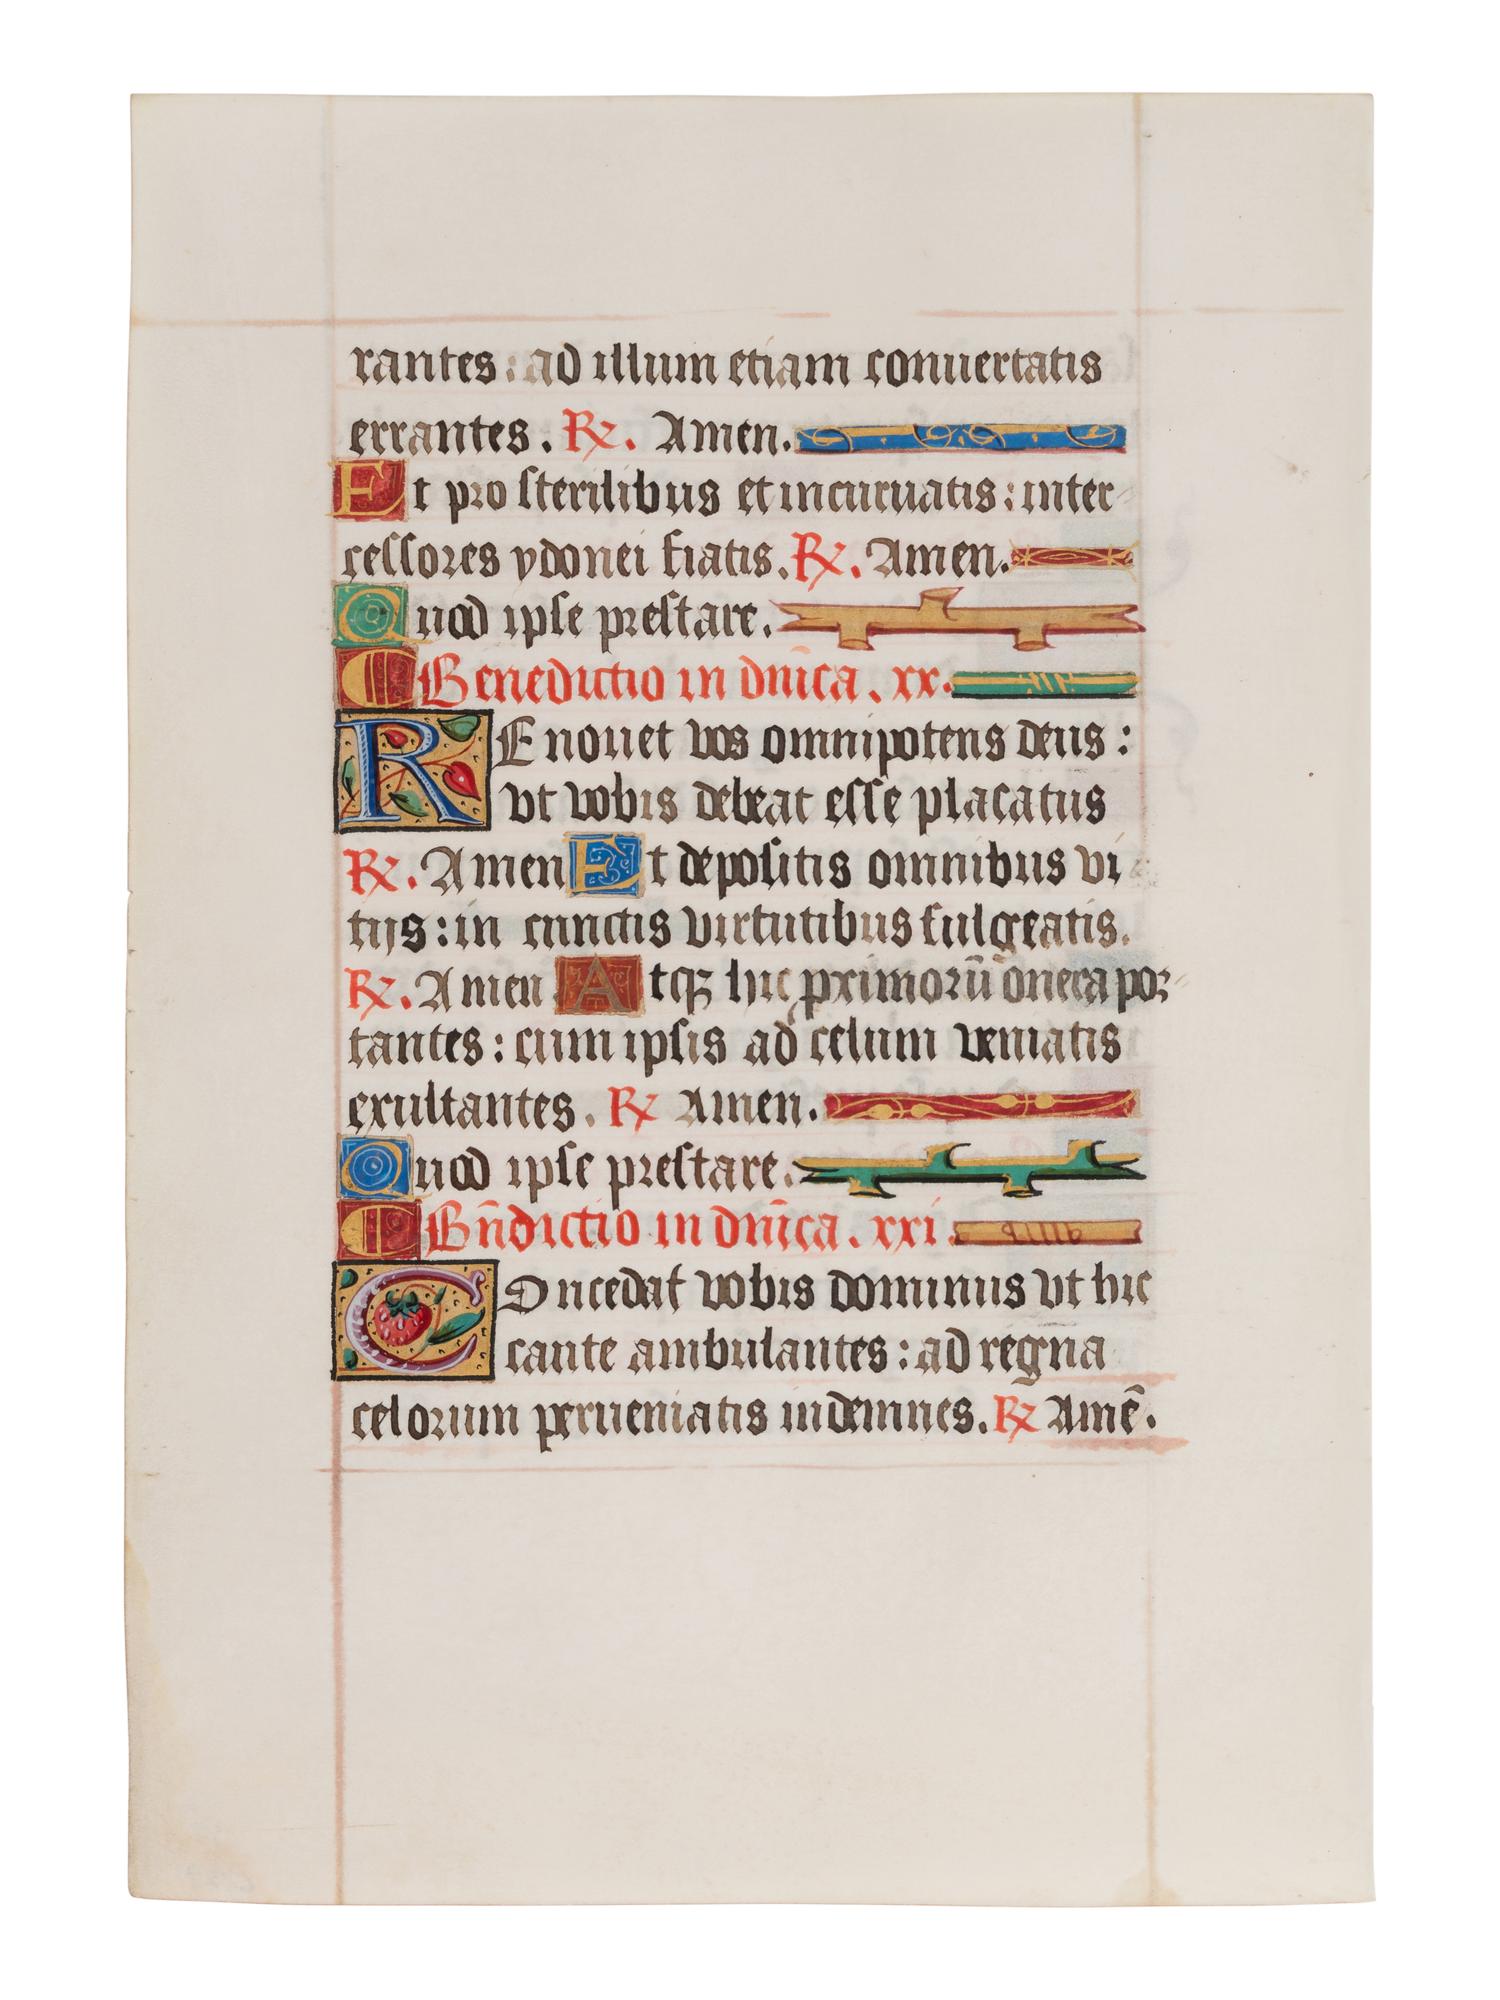 rantes : ad illum etiam conuertatis
errantes . ℟. Amen.
Et pro sterilibus et incuruatis : inter-
cessores ydonei fiatis. ℟. Amen.
Quod ipse prestare.
Benedictio in dn̄ica . xx.
REnouet vos omnipotens deus :
vt vobis debeat esse placatus
℟. Amen Et depositis omnibus vi
tijs : in cunctis virtutibus fulgeatis.
℟. Amen Atqꝫ hic ꝓximorū onera por-
tantes : cum ipsis ad celum veniatis
exultantes . ℟ Amen.
Quod ipse prestare.
Bn̄dictio in dn̄ica . xxi.
COncedat vobis dominus vt hic
caute ambulantes : ad regna
celorum perueniatis indemnes. ℟ Amē.